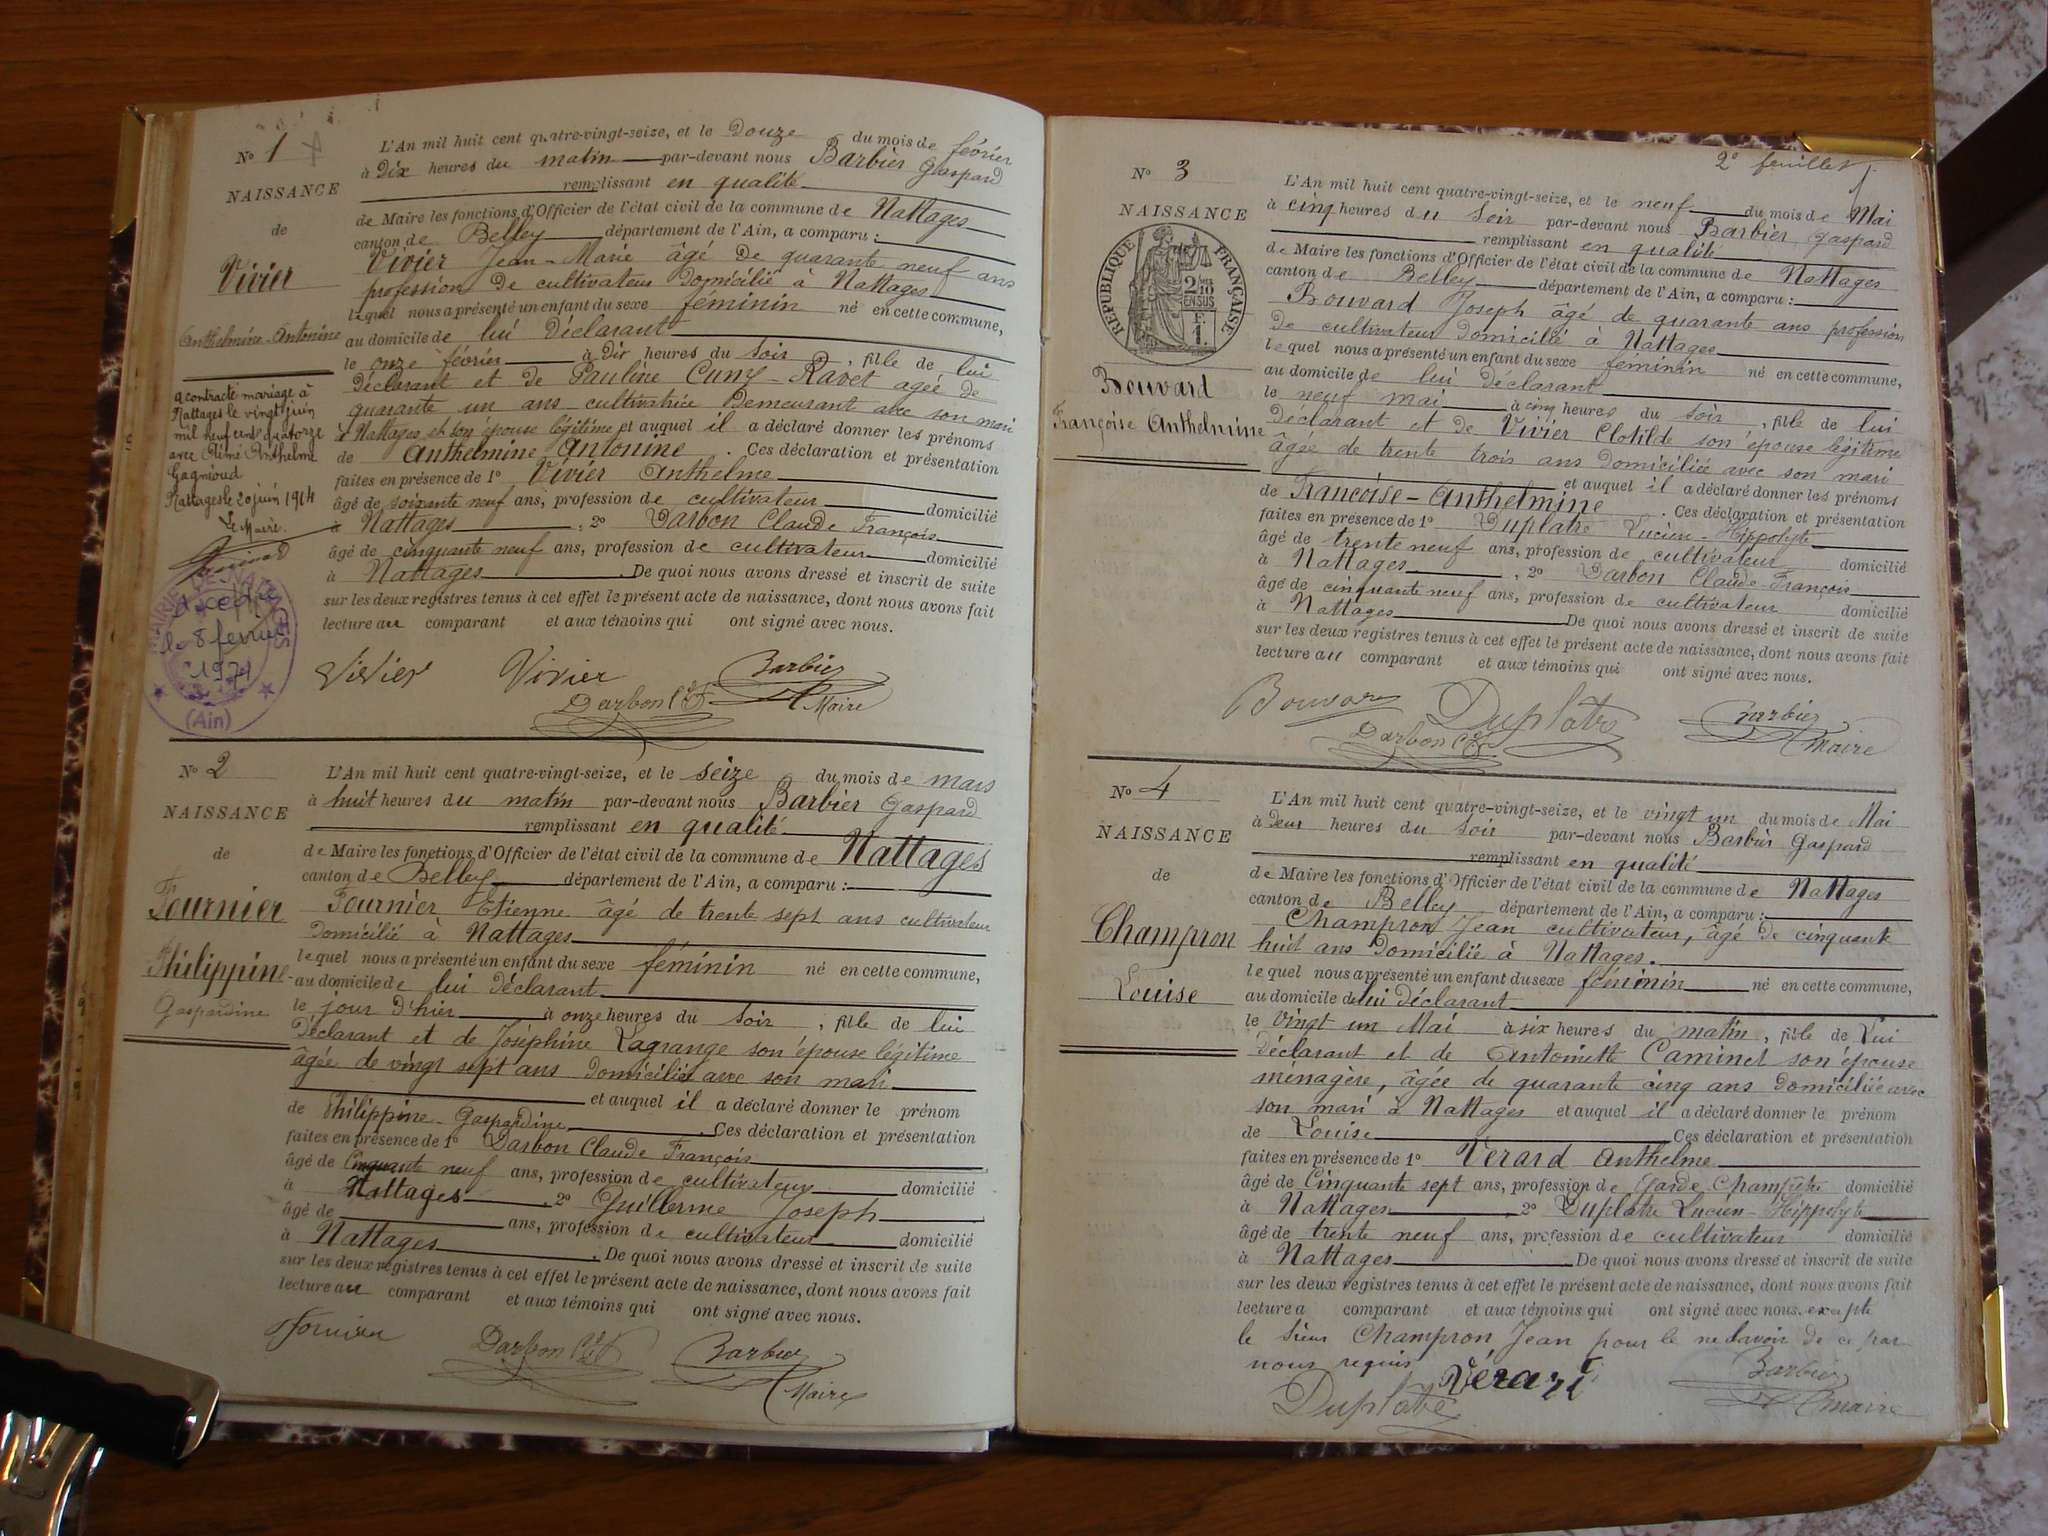 N° 1
NAISSANCE
de
Vivier
Anthelmine-Antonine
a contracté mariage à
Nattages le vingt juin
mil neuf cent quatorze
avec Aimé Anthelme
Gagnoud
Nattages le 20 juin 1914
Le Maire
décédée
le 8 février
1971
(Ain)
L'An mil huit cent quatre-vingt-seize, et le Douze du mois de février
à Dix heures du matin par-devant nous Barbier Gaspard
remplissant en qualité
de Maire les fonctions d'Officier de l'état civil de la commune de Nattages
canton de Belley département de l'Ain, a comparu :
Vivier Jean-Marie âgé de quarante neuf ans
profession de cultivateur Domicilié à Nattages
lequel nous a présenté un enfant du sexe féminin né en cette commune,
au domicile de lui Déclarant
le onze février à Dix heures du Soir, fille de lui
Déclarant et de Pauline Cuny-Ravet agée de
quarante un ans cultivatrice Demeurant avec son mari
à Nattages et son épouse légitime et auquel il a déclaré donner les prénoms
de Anthelmine Antonine. Ces déclaration et présentation
faites en présence de 1° Vivier Anthelme
âgé de soixante neuf ans, profession de cultivateur domicilié
à Nattages, 2° Darbon Claude François
âgé de cinquante neuf ans, profession de cultivateur domicilié
à Nattages. De quoi nous avons dressé et inscrit de suite
sur les deux registres tenus à cet effet le présent acte de naissance, dont nous avons fait
lecture au comparant et aux témoins qui ont signé avec nous.
Vivier Vivier Barbier
Darbon Maire
N° 2
NAISSANCE
de
Fournier
Philippine-
Gaspardine
L'An mil huit cent quatre-vingt-seize, et le seize du mois de mars
à huit heures du matin par-devant nous Barbier Gaspard
remplissant en qualité
de Maire les fonctions d'Officier de l'état civil de la commune de Nattages
canton de Belley département de l'Ain, a comparu :
Fournier Etienne âgé de trente sept ans cultivateur
Domicilié à Nattages
lequel nous a présenté un enfant du sexe féminin né en cette commune,
au domicile de lui Déclarant
le jour D'hier à onze heures du Soir, fille de lui
Déclarant et de Joséphine Lagrange son épouse légitime
âgée de vingt sept ans Domiciliée avec son mari
et auquel il a déclaré donner le prénom
de Philippine-Gaspardine. Ces déclaration et présentation
faites en présence de 1° Darbon Claude François
âgé de Cinquante neuf ans, profession de cultivateur domicilié
à Nattages, 2° Guillerme Joseph
âgé de ans, profession de cultivateur domicilié
à Nattages. De quoi nous avons dressé et inscrit de suite
sur les deux registres tenus à cet effet le présent acte de naissance, dont nous avons fait
lecture au comparant et aux témoins qui ont signé avec nous.
Darbon Barbier
Maire
2e feuillet
N° 3
NAISSANCE
RÉPUBLIQUE FRANÇAISE
2/10 EN SUS
Bouvard
Françoise Anthelmine
L'An mil huit cent quatre-vingt-seize, et le neuf du mois de Mai
à cinq heures du Soir par-devant nous Barbier Gaspard
remplissant en qualité
de Maire les fonctions d'Officier de l'état civil de la commune de Nattages
canton de Belley département de l'Ain, a comparu :
Bouvard Joseph âgé de quarante ans profession
De cultivateur Domicilié à Nattages
lequel nous a présenté un enfant du sexe féminin né en cette commune,
au domicile de lui Déclarant
le neuf mai à cinq heures du Soir, fille de lui
Déclarant et de Vivier Clotilde son épouse légitime
âgée de trente trois ans Domiciliée avec son mari
et auquel il a déclaré donner les prénoms
de Francoise-Anthelmine. Ces déclaration et présentation
faites en présence de 1° Duplatre Lucien-Hippolyte
âgé de trente neuf ans, profession de cultivateur domicilié
à Nattages, 2° Darbon Claude François
âgé de cinquante neuf ans, profession de cultivateur domicilié
à Nattages De quoi nous avons dressé et inscrit de suite
sur les deux registres tenus à cet effet le présent acte de naissance, dont nous avons fait
lecture au comparant et aux témoins qui ont signé avec nous.
Bouvard Duplatre Barbier
Darbon Maire
N° 4
NAISSANCE
de
Champron
Louise
L'An mil huit cent quatre-vingt-seize, et le vingt un du mois de Mai
à Deux heures du Soir par-devant nous Barbier Gaspard
remplissant en qualité
de Maire les fonctions d'Officier de l'état civil de la commune de Nattages
canton de Belley département de l'Ain, a comparu :
Champron Jean cultivateur, âgé de cinquante
huit ans Domicilié à Nattages.
lequel nous a présenté un enfant du sexe féminin né en cette commune,
au domicile de lui déclarant
le vingt un Mai à six heures du matin, fille de Lui
Déclarant et de Antoinette Caminet son épouse
ménagère, âgée de quarante cinq ans Domiciliée avec
son mari à Nattages et auquel il a déclaré donner le prénom
de Louise Ces déclaration et présentation
faites en présence de 1° Verard Anthelme
âgé de Cinquante sept ans, profession de Garde Champêtre domicilié
à Nattages 2° Duplatre Lucien-Hippolyte
âgé de trente neuf ans, profession de cultivateur domicilié
à Nattages De quoi nous avons dressé et inscrit de suite
sur les deux registres tenus à cet effet le présent acte de naissance, dont nous avons fait
lecture a comparant et aux témoins qui ont signé avec nous. excepté
le Sieur Champron Jean pour le ne savoir de ce par
nous requis
Vérard Barbier
Duplatre Maire